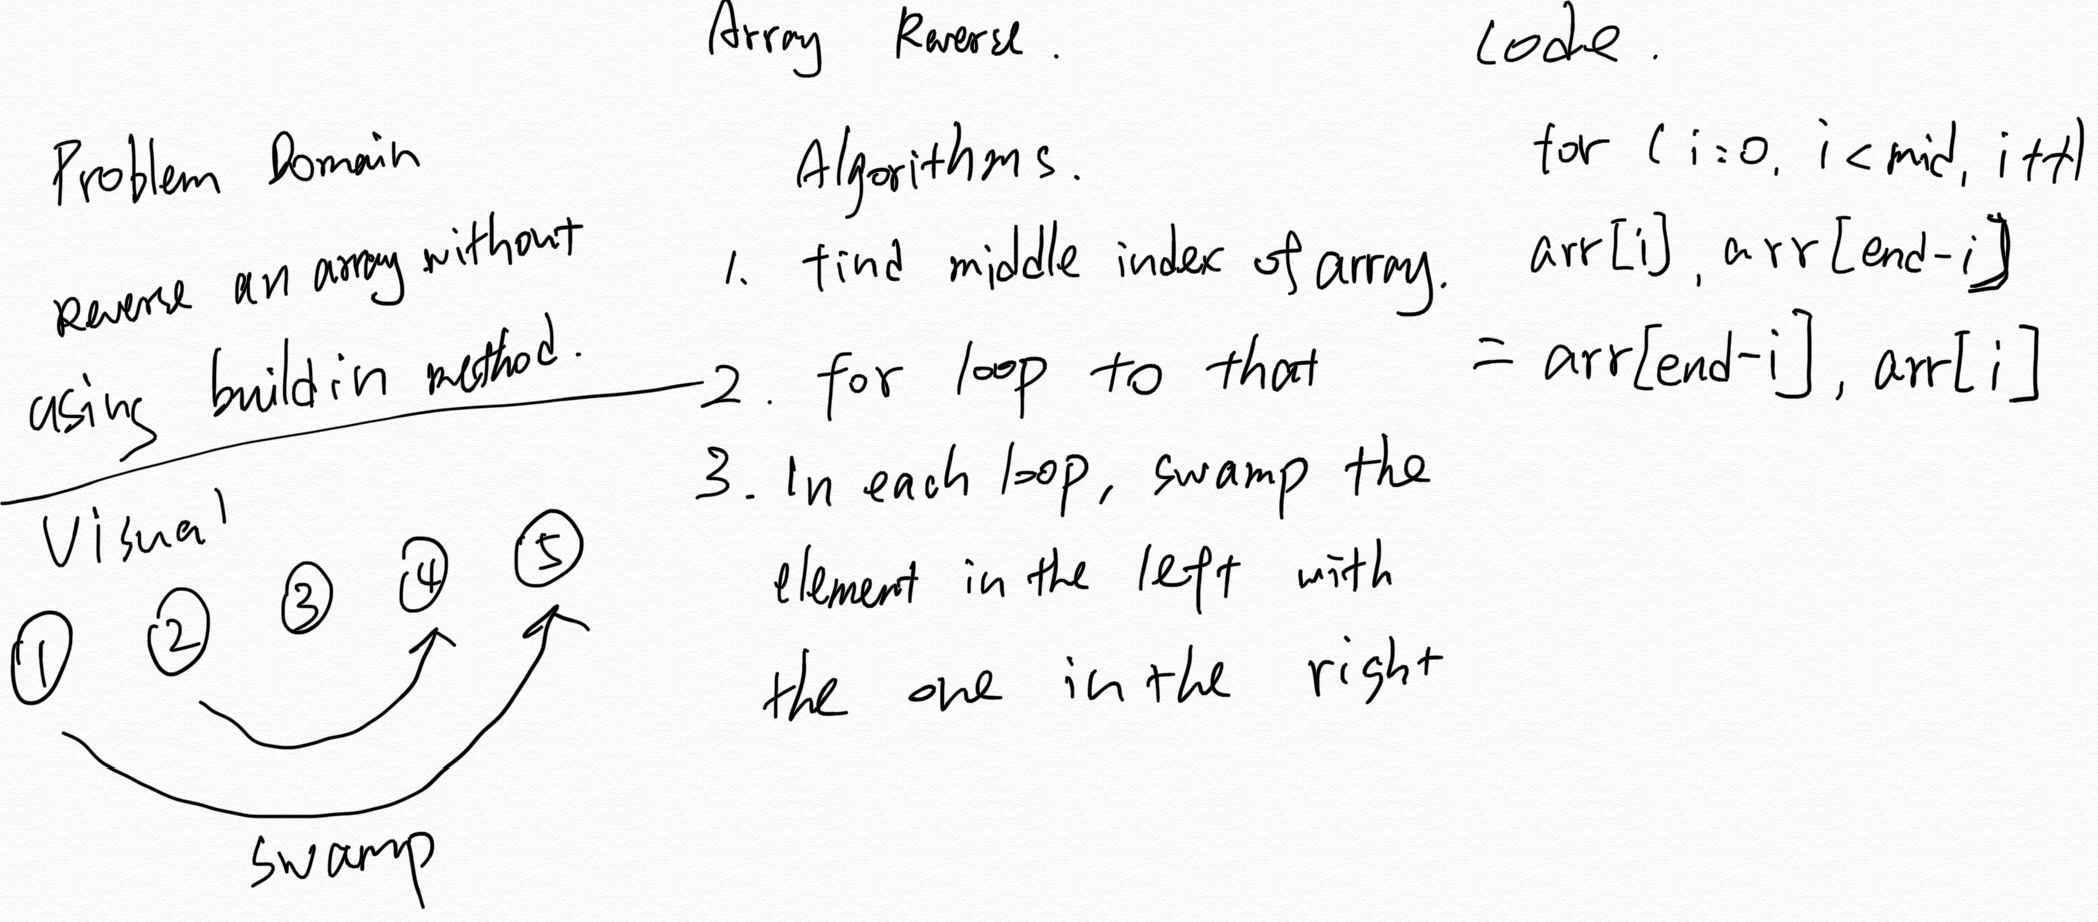 Array Reverse.
Problem Domain
Reverse an array without
using buildin method.
Visual
1 2 3 4 5
swamp
Algorithms.
1. find middle index of array.
2. for loop to that
3. In each loop, swamp the
element in the left with
the one in the right
Code.
for (i=0, i<mid, i++)
arr[i], arr[end-i]
= arr[end-i], arr[i]